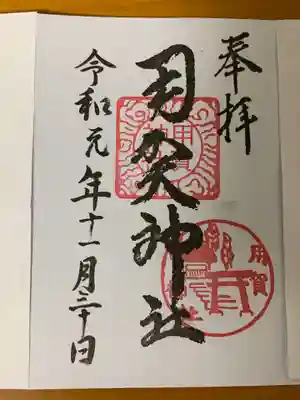 奉拝
用賀神社
令和元年十一月三十日
用賀
用賀